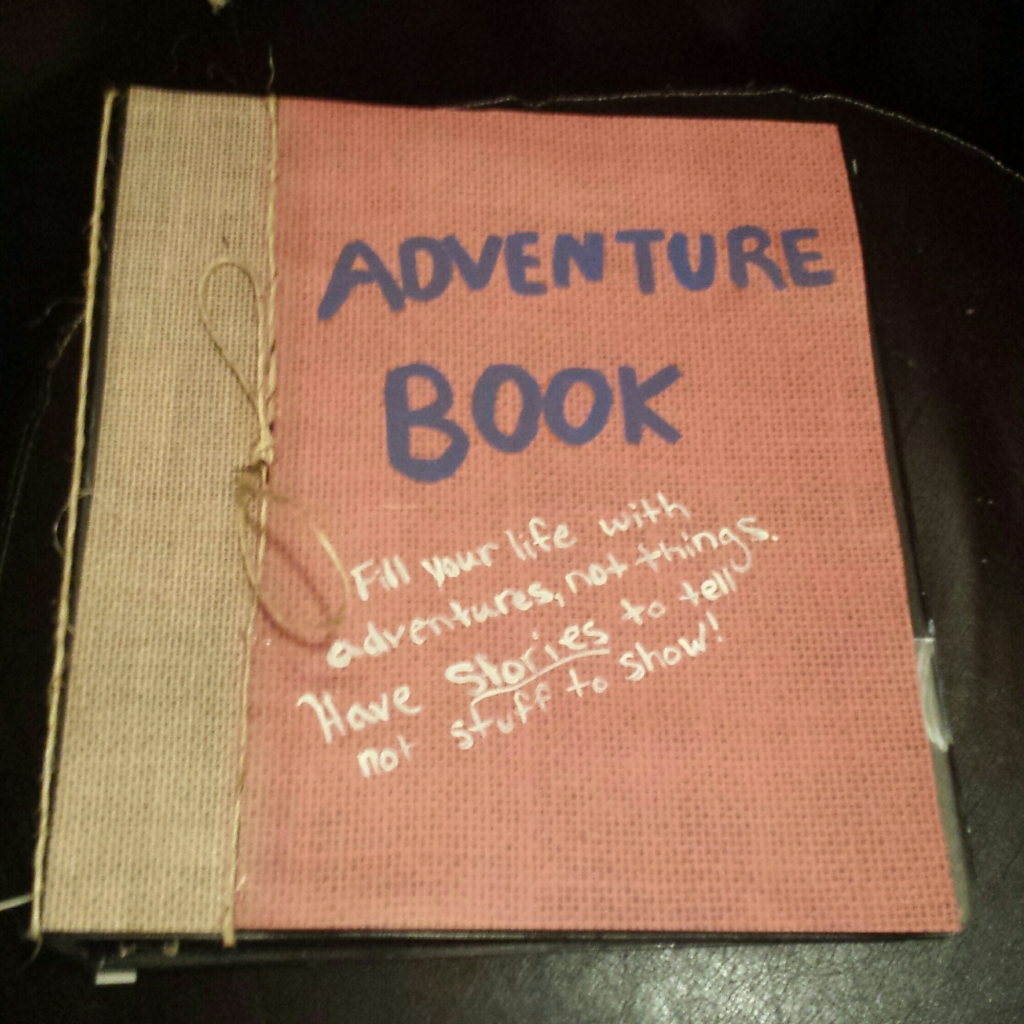 ADVENTURE
BOOK
Fill your life with
adventures, not things.
Have Stories to tell
not stuff to show!